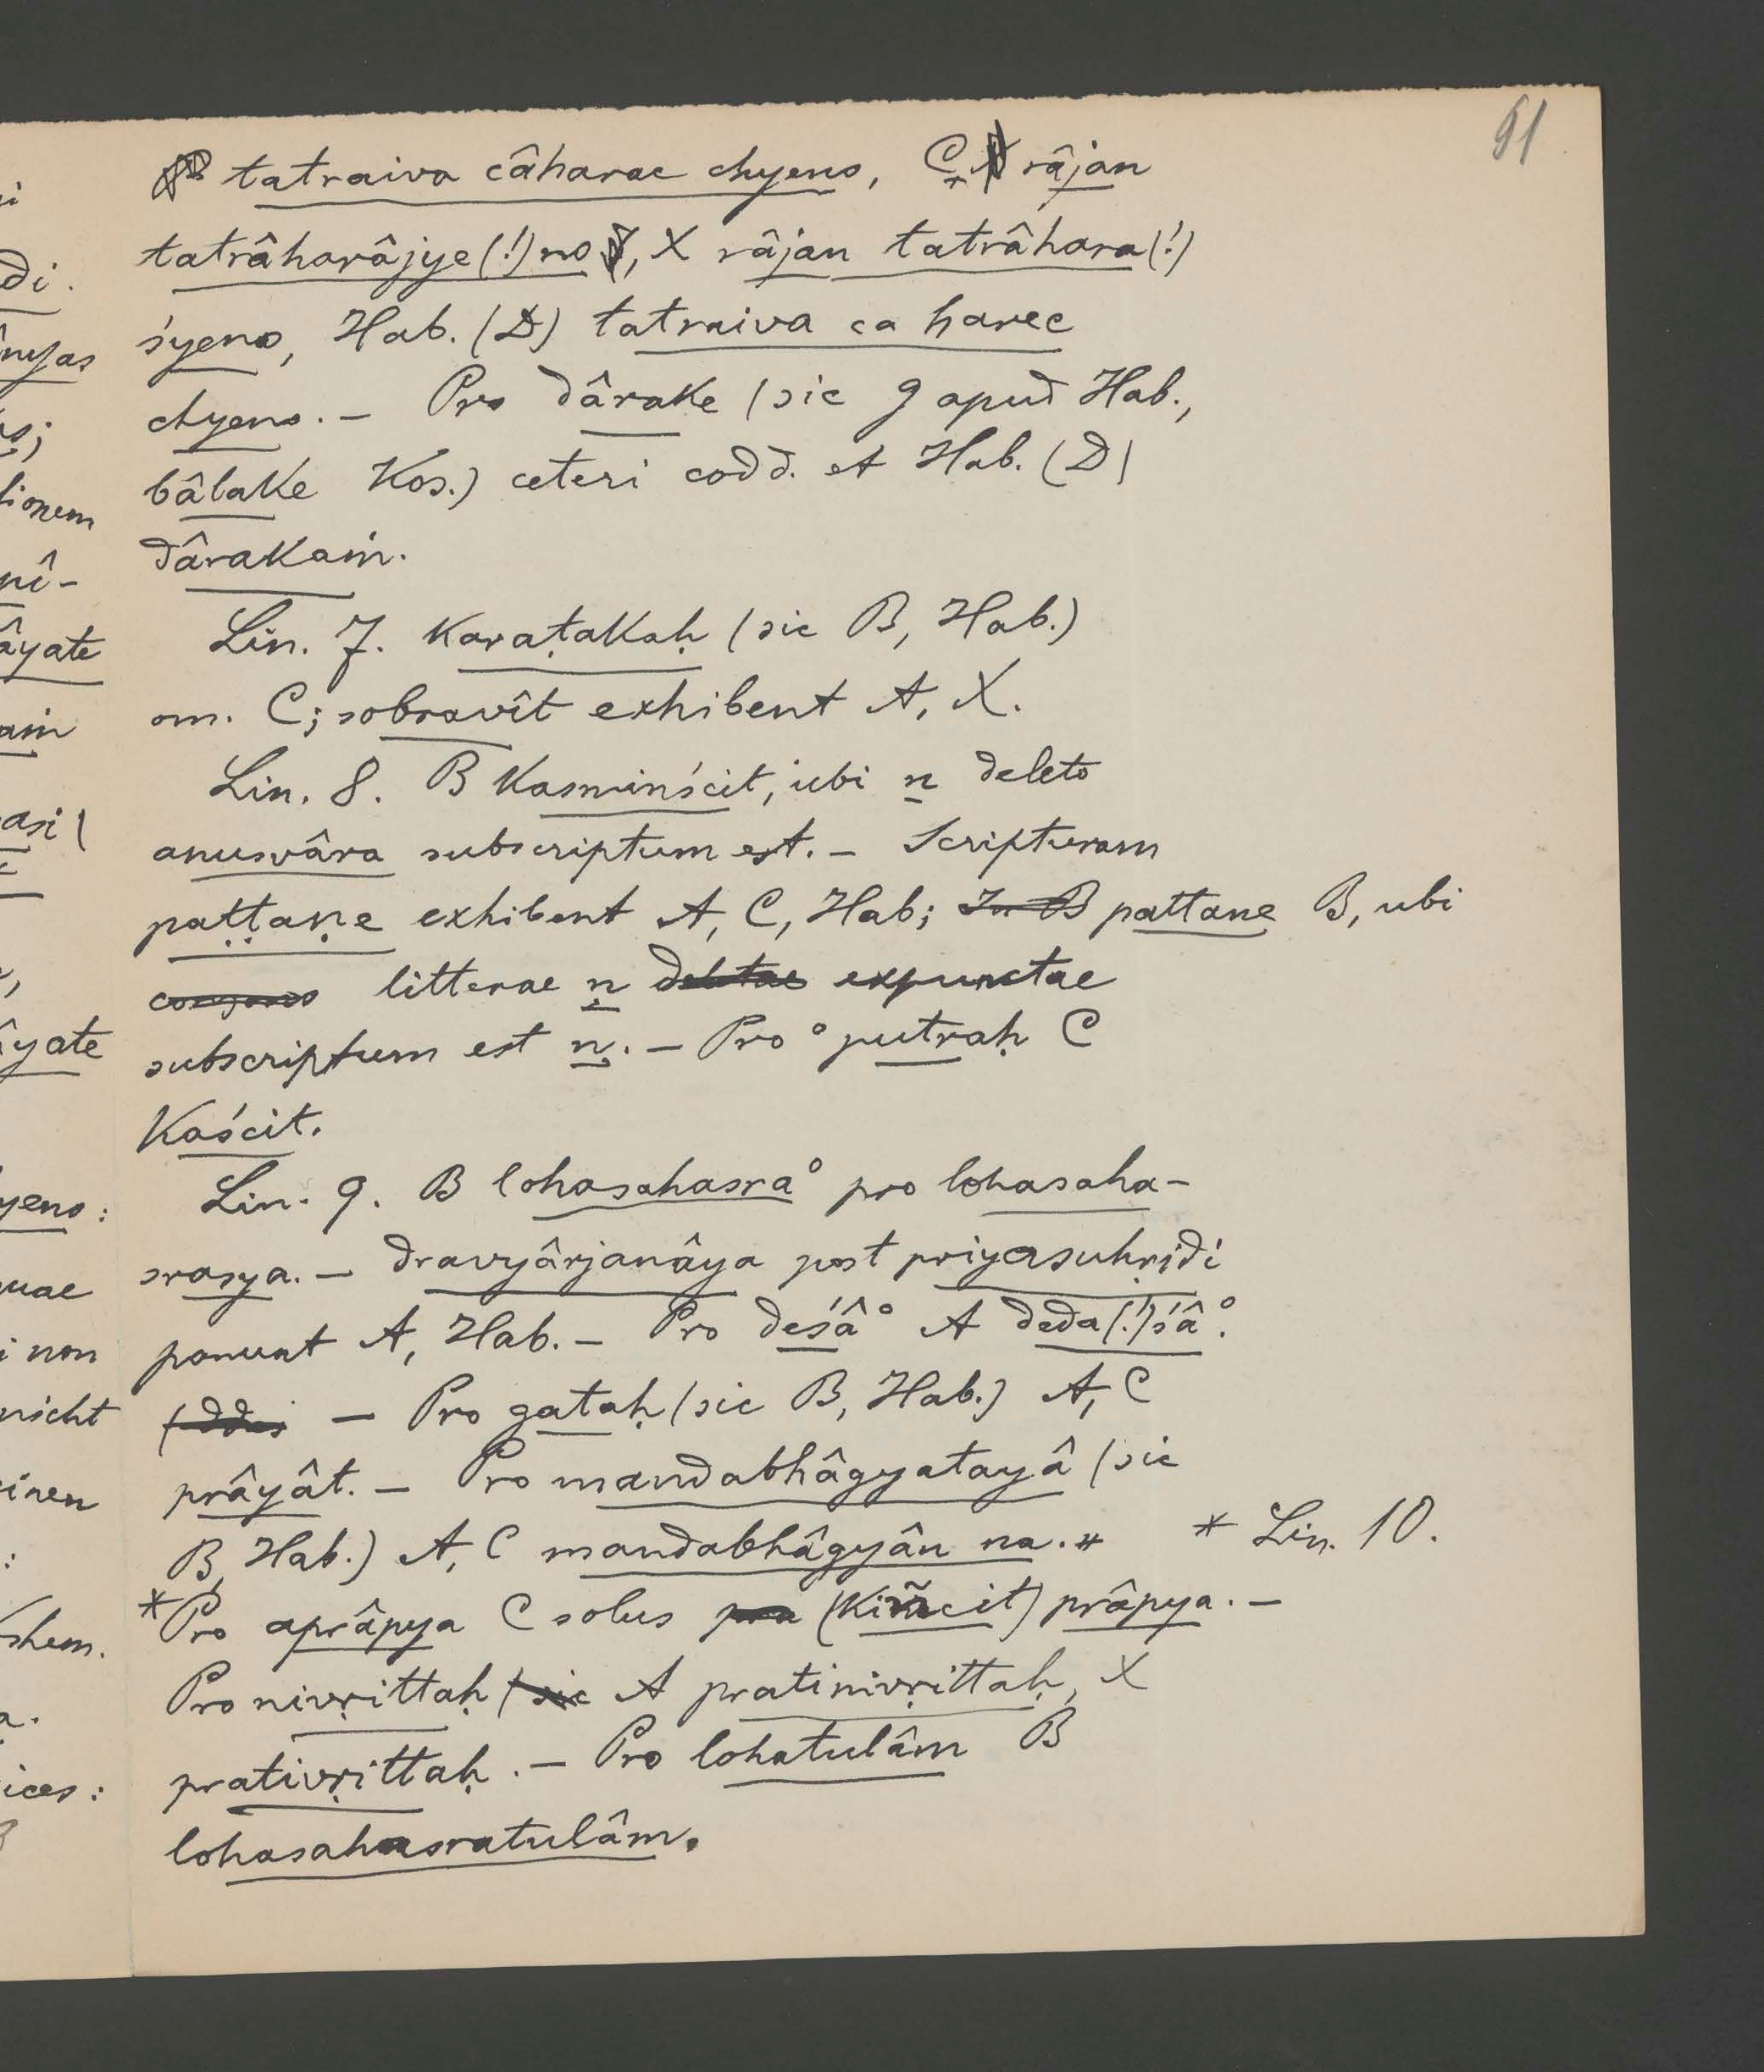 91
B tatraiva câharac chyeno, C râjan
tatrâharâjye(!)no, X râjan tatrâhara(!)
śyeno, Hab. (D) tatraiva ca harec
chyeno. — Pro dârake (sic 9 apud Hab.,
bâlake Kos.) ceteri codd. et Hab. (D)
dârakaṁ.
Lin. 7. Karaṭakaḥ (sic B, Hab.)
om. C; sobravît exhibent A, X.
Lin. 8. B Kasminścit, ubi n deleto
anusvâra subscriptum est. — Scripturam
paṭṭaṇe exhibent A, C, Hab; In B pattane B, ubi
litterae n deletae expunctae
subscriptum est ṇ. — Pro °putraḥ C
Kaścit.
Lin. 9. B lohasahasra° pro lohasaha-
srasya. — dravyârjanâya post priyasuhṛidi
ponunt A, Hab. — Pro deśâ° A deda(!)śâ°.
— Pro gataḥ (sic B, Hab.) A, C
prâyât. — Pro mandabhâgyatayâ (sic
B, Hab.) A, C mandabhâgyân na. * * Lin. 10.
*Pro aprâpya C solus pra (Kiñcit) prâpya. —
Pro nivṛittaḥ (sic A pratinivṛittaḥ, X
prativṛittaḥ. — Pro lohatulâm B
lohasahasratulâm.
di.
nyas
lionem
nî-
âyate
aṁ
asi (
âyate
yeno:
uae
i non
nicht
einen
:
shem.
a.
ices: